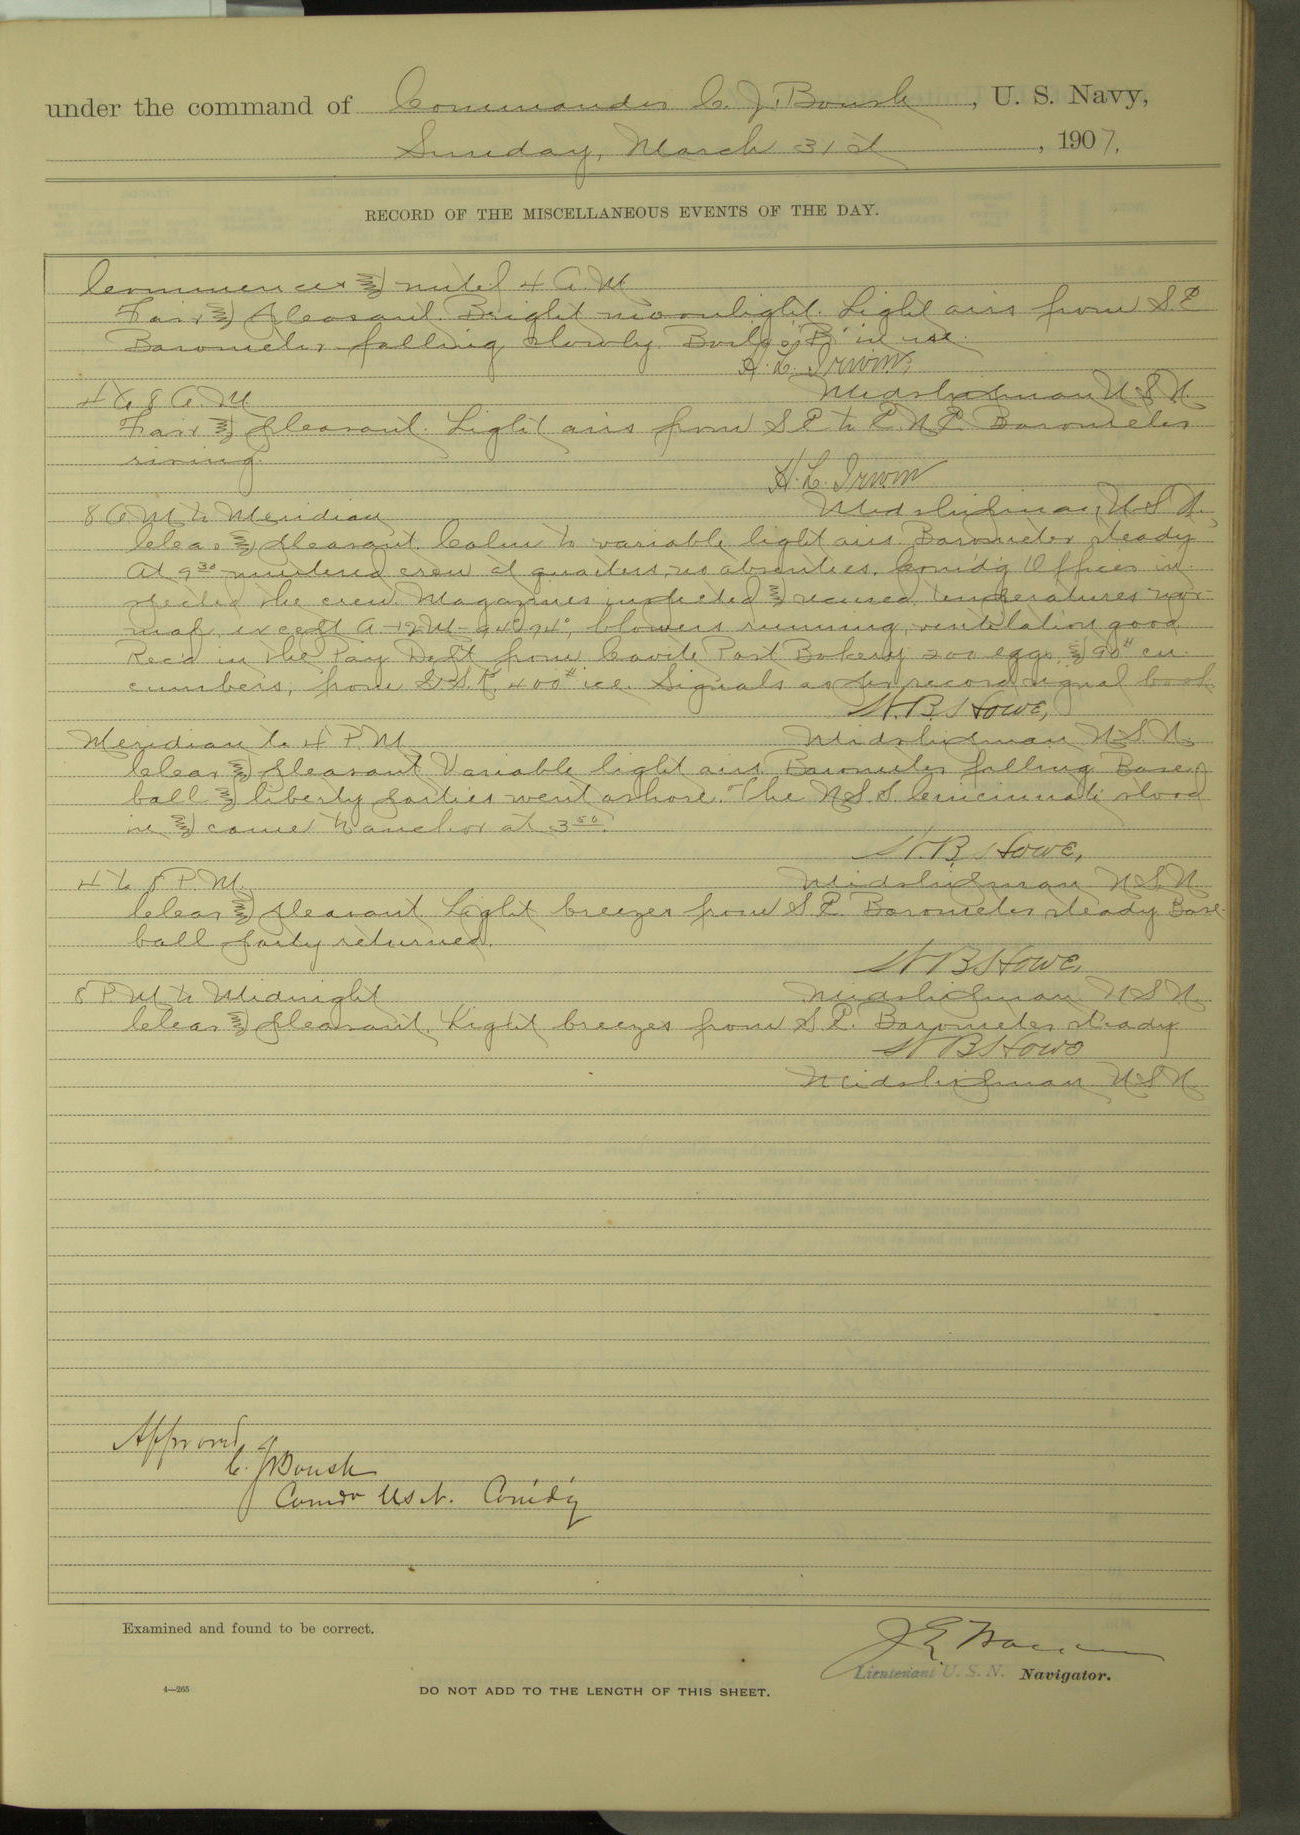 under the command of Commander C. J. Boush, U. S. Navy,
Sunday, March 31st, 1907.
RECORD OF THE MISCELLANEOUS EVENTS OF THE DAY.
Commences & until 4 A.M.
Fair & pleasant. Bright moonlight. Light airs from S.E.
Barometer falling slowly. Boiler "B" in use.
H. L. Irwin,
Midshipman U S N.
4 to 8 A.M.
Fair & pleasant. Light airs from S E to E N E. Barometer
rising.
H. L. Irwin
Midshipman, U. S. N.
8 A M to Meridian
Clear & pleasant. Calm to variable light airs. Barometer steady
At 9 30 mustered crew at quarters, no absentees. Com'd'g Officer in-
spected the crew. Magazines inspected & secured, temperatures nor-
mal, except A-12 M-94° 94°, blowers running, ventilation good
Rec'd in the Pay Dept from Cavite Post Bakery 200 eggs, & 90# cu-
cumbers, from 400# ice. Signals as per record signal book.
W. B. Howe,
Midshipman U. S. N.
Meridian to 4 P. M.
Clear & pleasant Variable light airs. Barometer falling Base-
ball & liberty parties went ashore. The U.S.S. Cincinnati stood
in & came to anchor at 3 50.
W. B. Howe,
Midshipman U. S. N.
4 to 8 P. M.
Clear & pleasant. Light breezes from S E. Barometer steady Base-
ball party returned.
W B Howe,
Midshipman U. S. N.
8 P M to Midnight
Clear & pleasant. Light breezes from S E. Barometer steady
W B Howe
Midshipman U. S. N.
Approved
C. J. Boush
Comdr U S N. Com'd'g
Examined and found to be correct.
J E
Lieutenant U. S. N. Navigator.
4—265
DO NOT ADD TO THE LENGTH OF THIS SHEET.